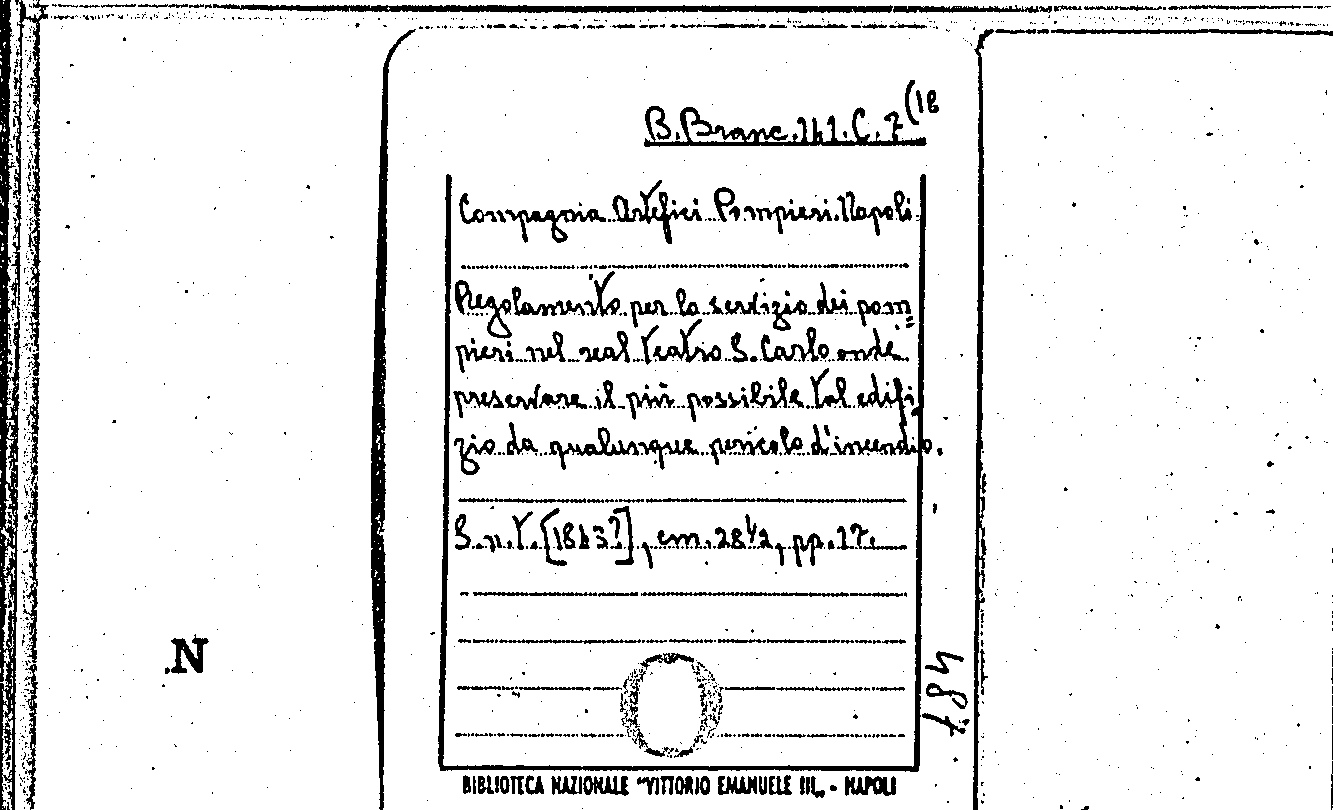 B. Branc. 141. C. 7(18
Compagnia Artefici Pompieri. Napoli.
Regolamento per lo servizio dei pom=
pieri nel real teatro S. Carlo onde
preservare il più possibile tal edifi
zio da qualunque pericolo d'incendio.
S.n.t. [1843?], cm. 28½, pp. 17.
N
784
BIBLIOTECA NAZIONALE "VITTORIO EMANUELE III„ - NAPOLI